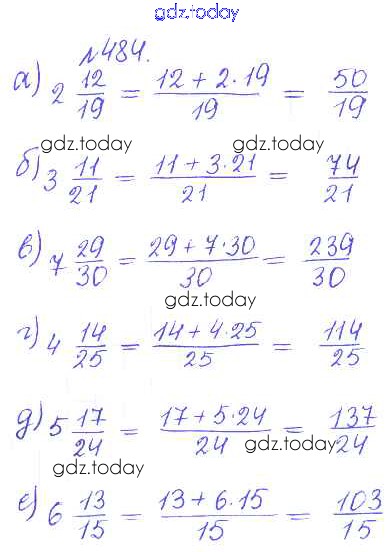 gdz.today
№484.
а) 2 12/19 = (12 + 2·19)/19 = 50/19
gdz.today
б) 3 11/21 = (11 + 3·21)/21 = 74/21
в) 7 29/30 = (29 + 7·30)/30 = 239/30
gdz.today
г) 4 14/25 = (14 + 4·25)/25 = 114/25
д) 5 17/24 = (17 + 5·24)/24 = 137/24
gdz.today
gdz.today
е) 6 13/15 = (13 + 6·15)/15 = 103/15